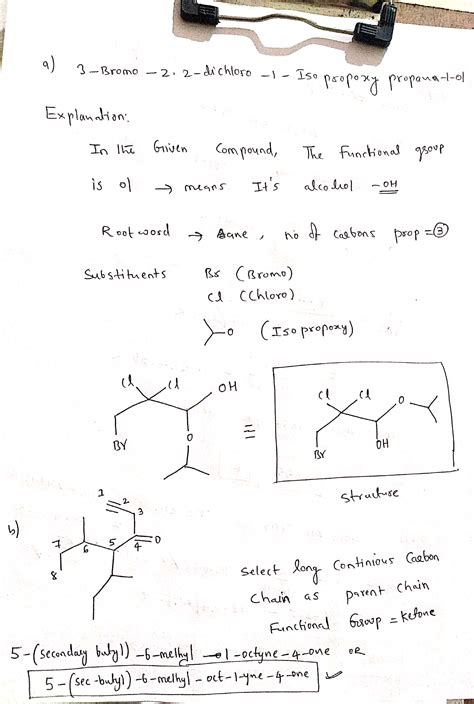 a) 3-Bromo-2.2-dichloro-1-Isopropoxy propana-1-ol
Explanation:
In the Given Compound, The Functional group
is ol → means It's alcohol -OH
Root word → ane, no of Carbons prop = ③
Substituents Br (Bromo)
Cl (Chloro)
o (Isopropoxy)
Cl Cl OH
Br
O
≡
Cl Cl O
Br OH
Structure
b)
1 2 3
7 6 5 4 O
8
Select long Continious Carbon
Chain as parent Chain
Functional Group = Ketone
5-(secondary butyl)-6-methyl-1-octyne-4-one OR
5-(sec-butyl)-6-methyl-oct-1-yne-4-one ✓